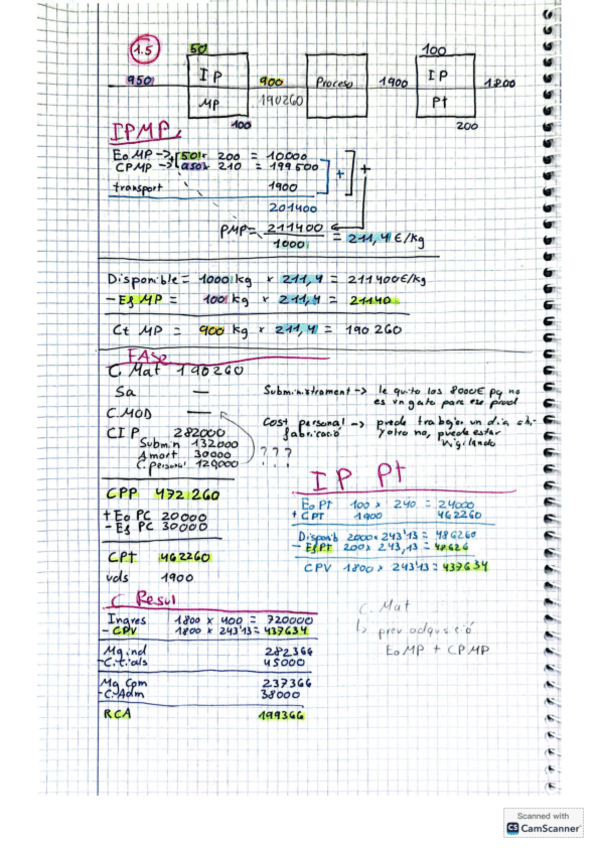 1.5
50 100
950 IP 900 Proceso 1900 IP 1800
MP 190260 Pt
100 200
IPMP
Eo MP → +[50 x 200 = 10000
CPMP → 950 x 210 = 199500
transport 1900
+ +
201400
PMP = 211400 / 1000 = 211,4 €/kg
Disponible = 1000 kg x 211,4 = 211400€/kg
- Ef MP = 100 kg x 211,4 = 21140
Ct MP = 900 kg x 211,4 = 190 260
FASE
C. Mat 190260
Sa —
C.MOD —
CIP 282000
Submin 132000
Amort 30000
C. personal 120000
Subministrament → le quito los 8000€ pq no
es un gasto para ese prod
Cost personal → puede trabajar un dia ahi
fabricació y otro no, puede estar
vigilando
? ? ?
CPP 472 260
+ Eo PC 20000
- Ef PC 30000
CPt 462260
uds 1900
IP Pt
Eo Pt 100 x 240 = 24000
+ CPT 1900 462260
Disponib 2000 x 243'13 = 486260
- Ef Pt 200 x 243,13 = 48626
CPV 1800 x 243'13 = 437634
C Resul
Ingres 1800 x 400 = 720000
- CPV 1800 x 243'13 = 437634
Mg ind 282366
- C.tials 45000
Mg Com 237366
- C.Adm 38000
RCA 199366
C. Mat
↳ preu adquisició
Eo MP + CPMP
Scanned with
CS CamScanner